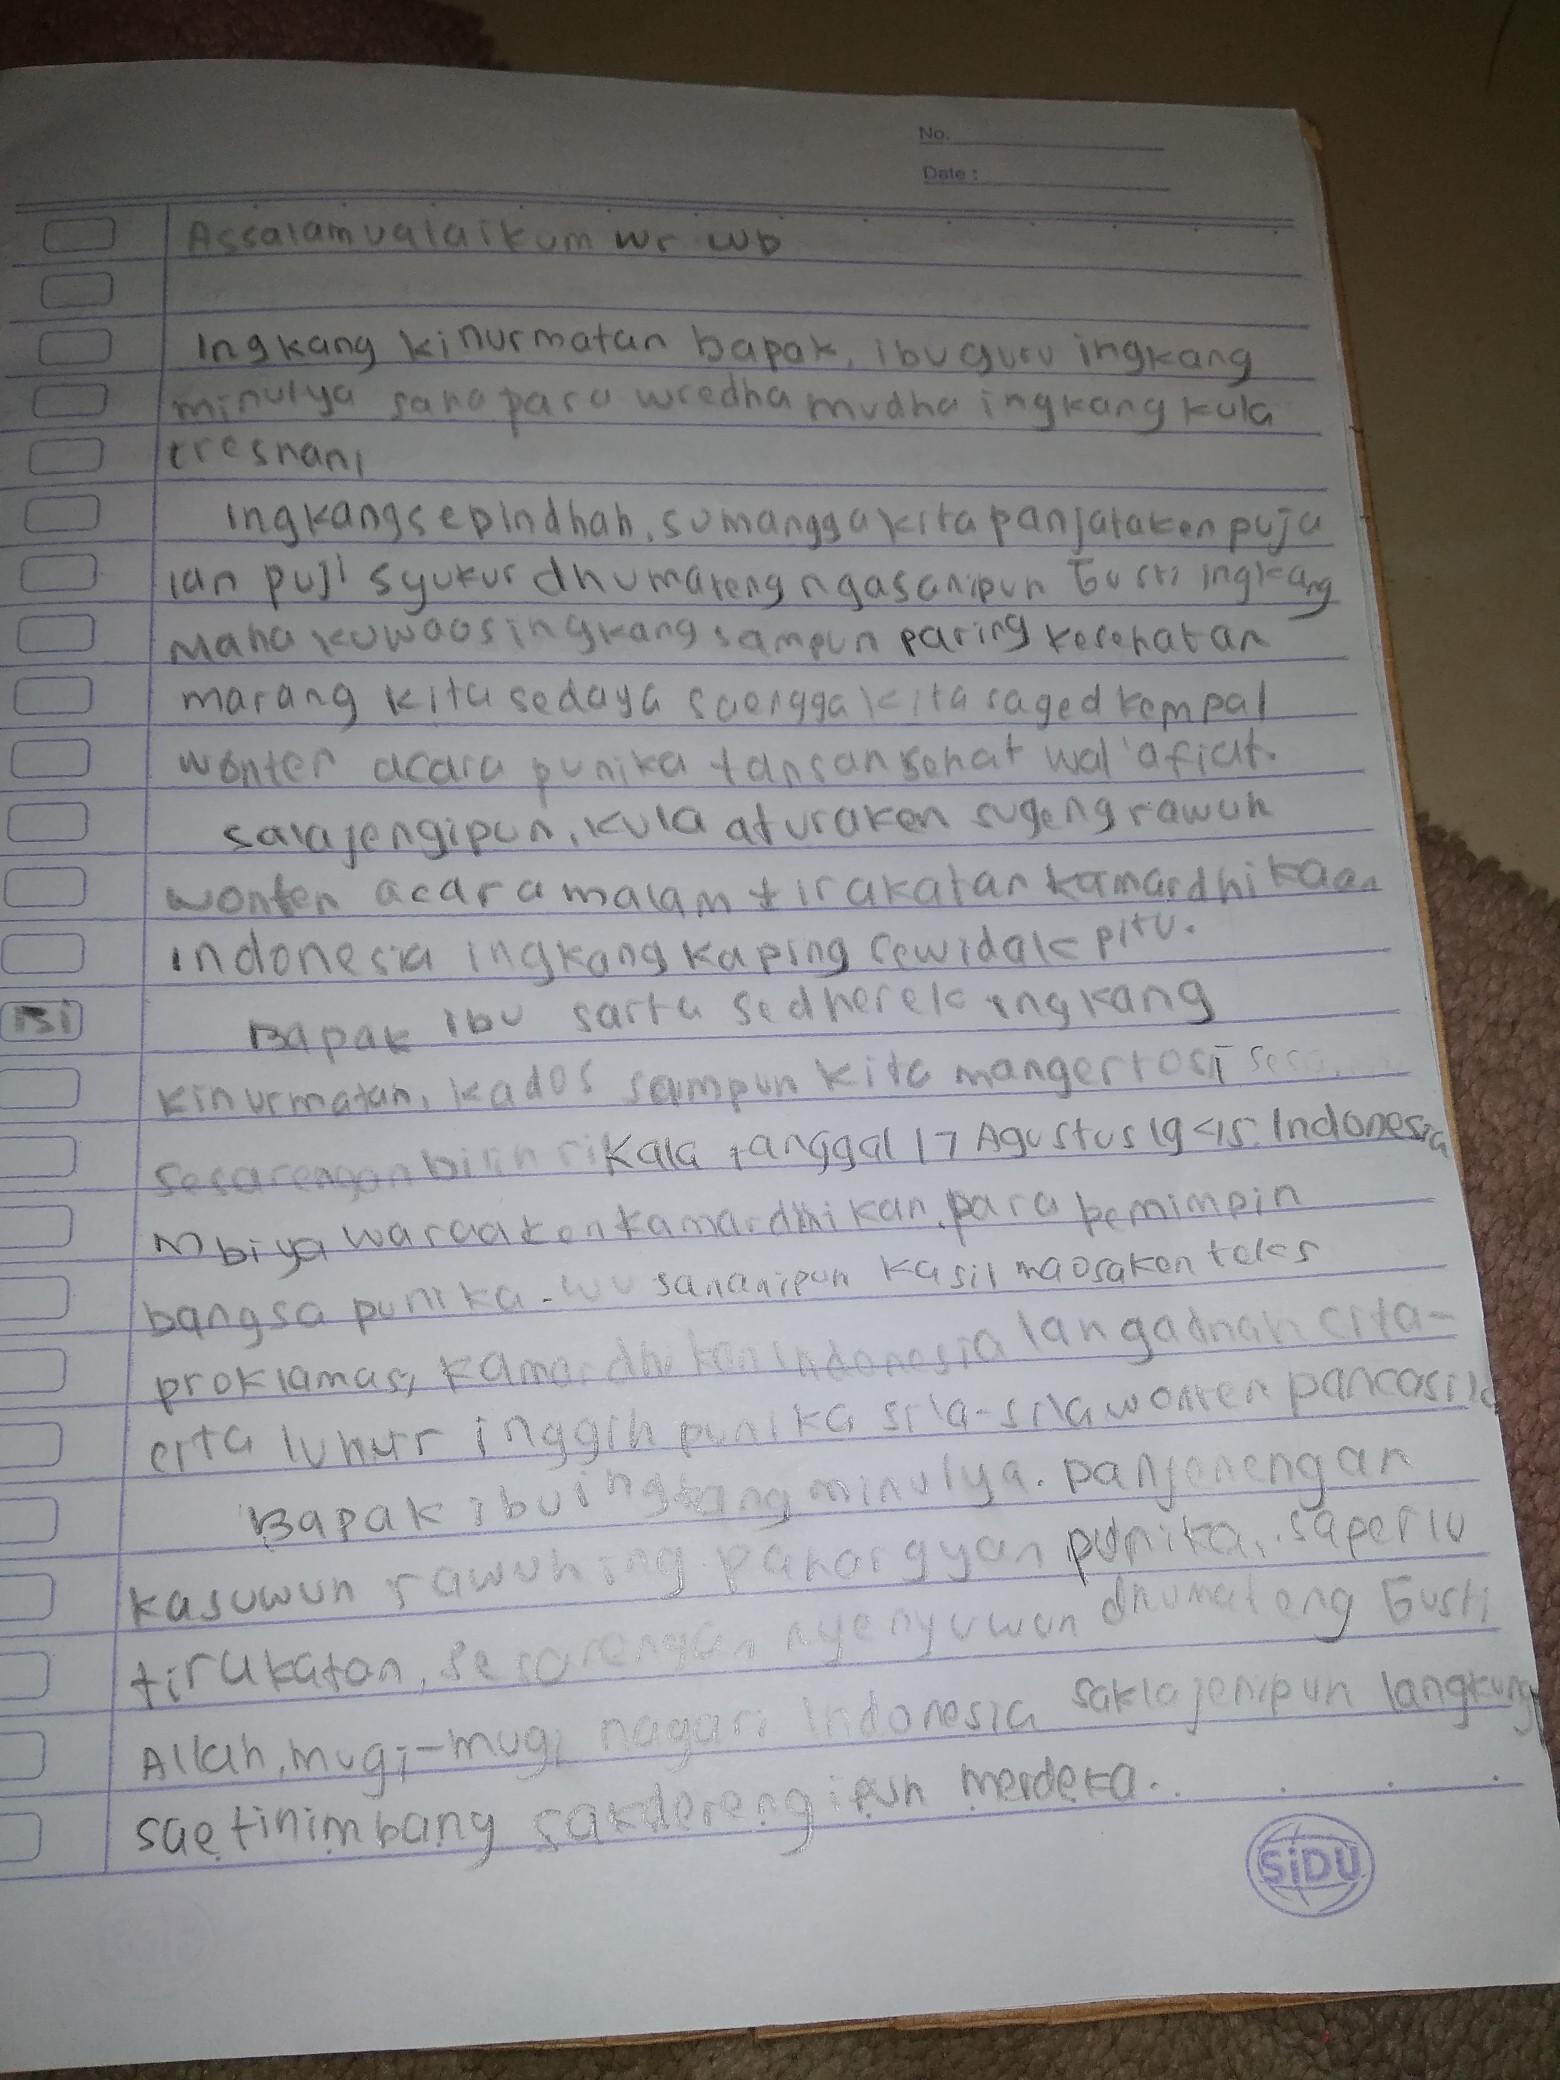 No.
Date :
Assalamualaikum wr wb
Ingkang kinurmatan bapak, ibu guru ingkang
minulya sara para wredha mudha ingkang kula
tresnani
Ingkang sepindhah, sumangga kita panjataken puja
lan puji syukur dhumateng ngasanipun Gusti ingkang
Maha kuwaos ingkang sampun paring kesehatan
marang kita sedaya saengga kita saged kempal
wonten acara punika tansan sehat wal 'afiat.
salajengipun, kula aturaken sugeng rawuh
wonten acara malam tirakatan kamardhikaan
indonesia ingkang kaping sewidak pitu.
isi
Bapak ibu sarta sedherek ingkang
kinurmatan, kados sampun kita mangertosi
sesarengan bilih rikala tanggal 17 Agustus 1945. Indonesia
mbiya waraaken kamardhikan. para pemimpin
bangsa punika - wusananipun kasil maosaken teks
proklamasi kamardhikan indonesia lan gadhah cita-
cita luhur inggih punika sila-sila wonten pancasila
Bapak ibu ingkang minulya. panjenengan
kasuwun rawuh ing pakaryyan punika, saperlu
tirakatan, sesarengan nyenyuwun dhumateng Gusti
Allah, mugi-mugi nagari Indonesia saklajenipun langkung
sae tinimbang sakderengipun merdeka.
SiDU